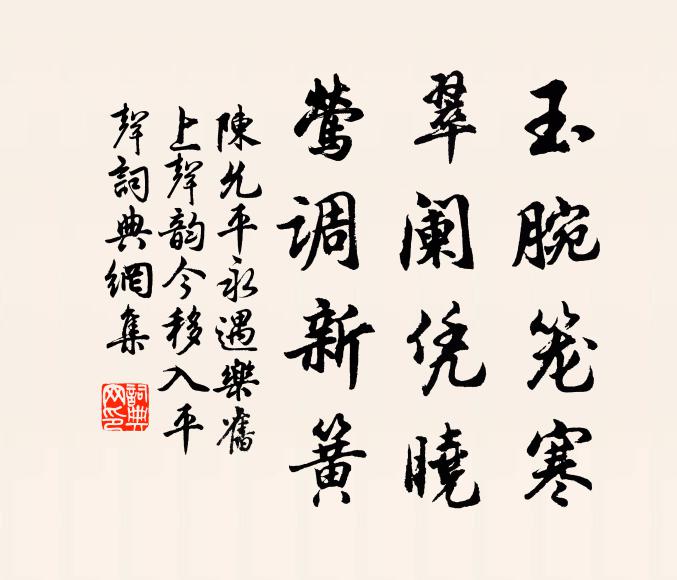 玉腕笼寒
翠阑凭曉
莺调新簧
陳允平永遇樂舊
上聲韵今移入平
聲詞典網集
詞典网印